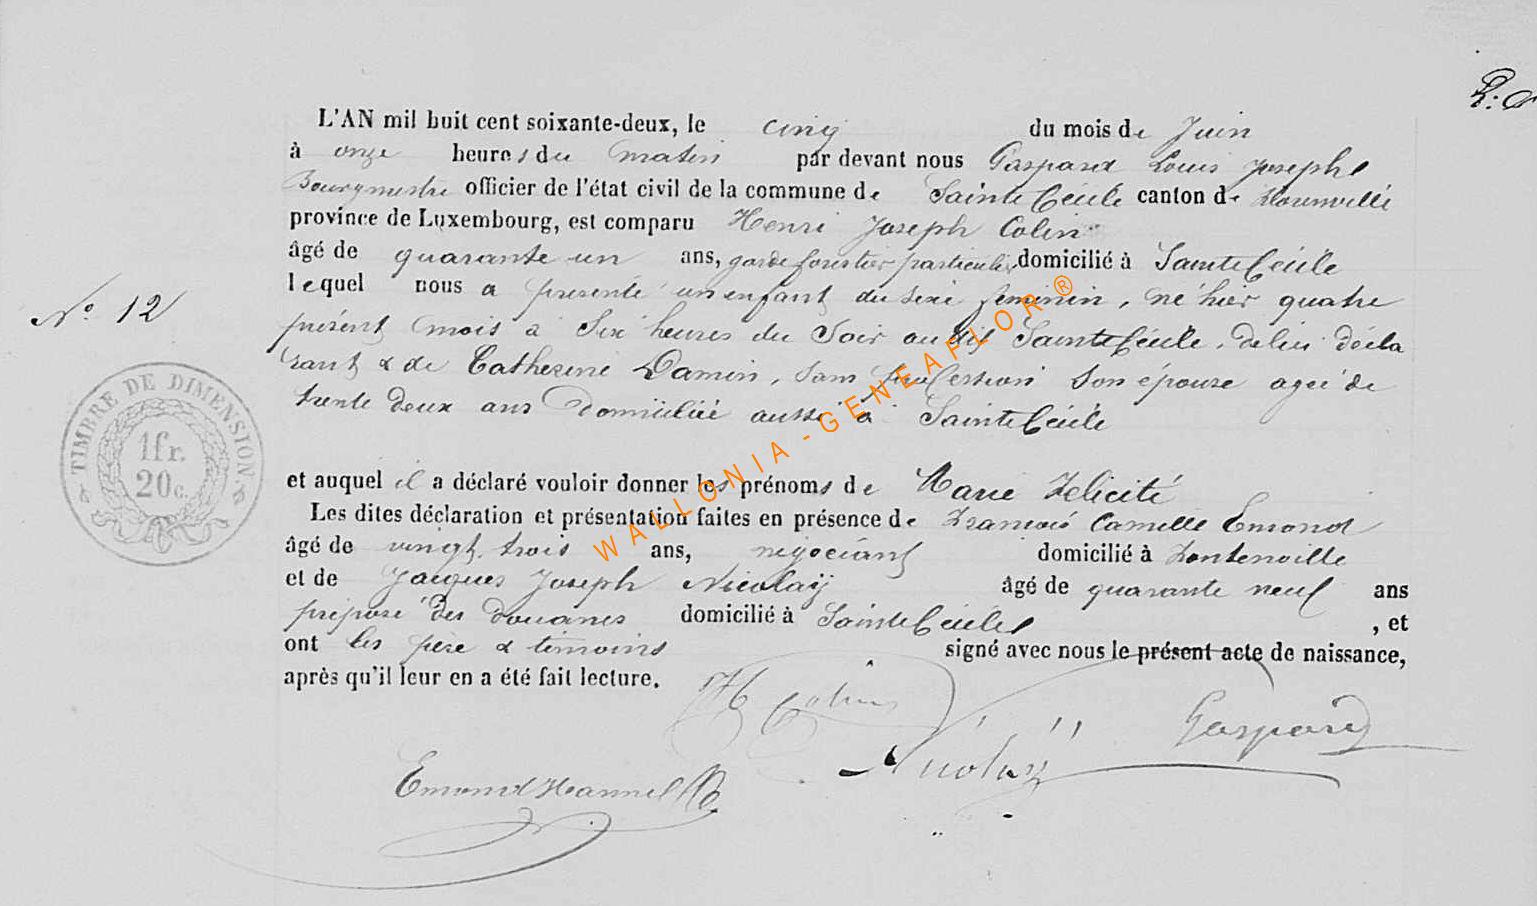 L'AN mil huit cent soixante-deux, le cinq du mois de Juin
à onze heures du matin par devant nous Gaspard Louis Joseph
Bourgmestre officier de l'état civil de la commune de Sainte Cécile canton de Florenville
province de Luxembourg, est comparu Henri Joseph Colin
âgé de quarante un ans, garde forestier particulier domicilié à Sainte Cécile
lequel nous a présenté un enfant du sexe féminin, né hier quatre
présent mois à Six heures du Soir audit Sainte Cécile, de lui décla
rant & de Catherine Damin, sans profession Son épouse agée de
trente deux ans Domiciliée aussi à Sainte Cécile
N° 12
TIMBRE DE DIMENSION
1fr.
20c.
et auquel il a déclaré vouloir donner les prénoms de Marie Félicité
Les dites déclaration et présentation faites en présence de François Camille Emond
âgé de vingt trois ans, négociant domicilié à Fontenoille
et de Jacques Joseph Nicolaÿ âgé de quarante neuf ans
préposé des douanes domicilié à Sainte Cécile, et
ont les père & témoins signé avec nous le présent acte de naissance,
après qu'il leur en a été fait lecture.
H Colin
Gaspard
Nicolaÿ
Emond
WALLONIA - GENEAFLOR ®